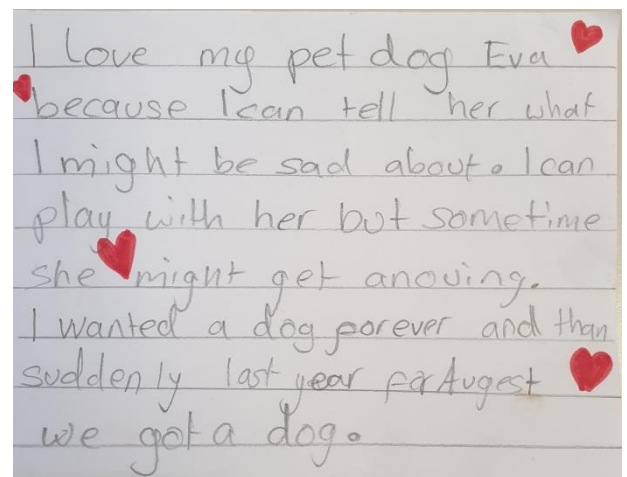 I love my pet dog Eva
because I can tell her what
I might be sad about. I can
play with her but sometime
she might get anoving.
I wanted a dog porever and than
suddenly last year for Augest
we got a dog.